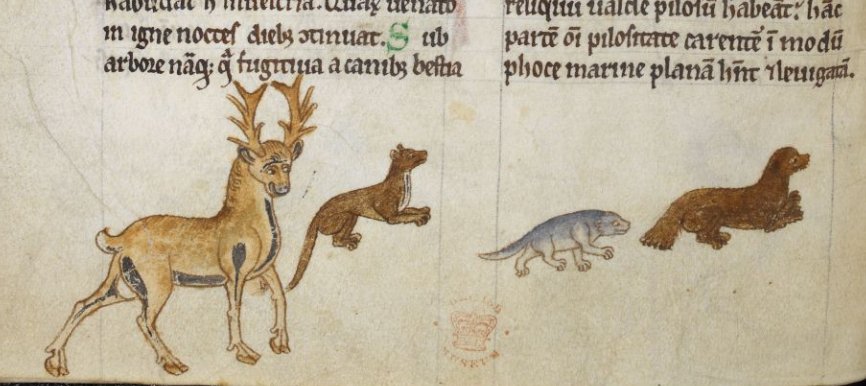 in igne noctes dieb; ↄtinuat. Sub
arbore nāq; q̄ fugitiua a canib; bestia
reliquū ualde pilosū habeāt: hāc
partē oī pilositate carentē ī modū
phoce marine planā hn̄t ⁊ leuigatā.